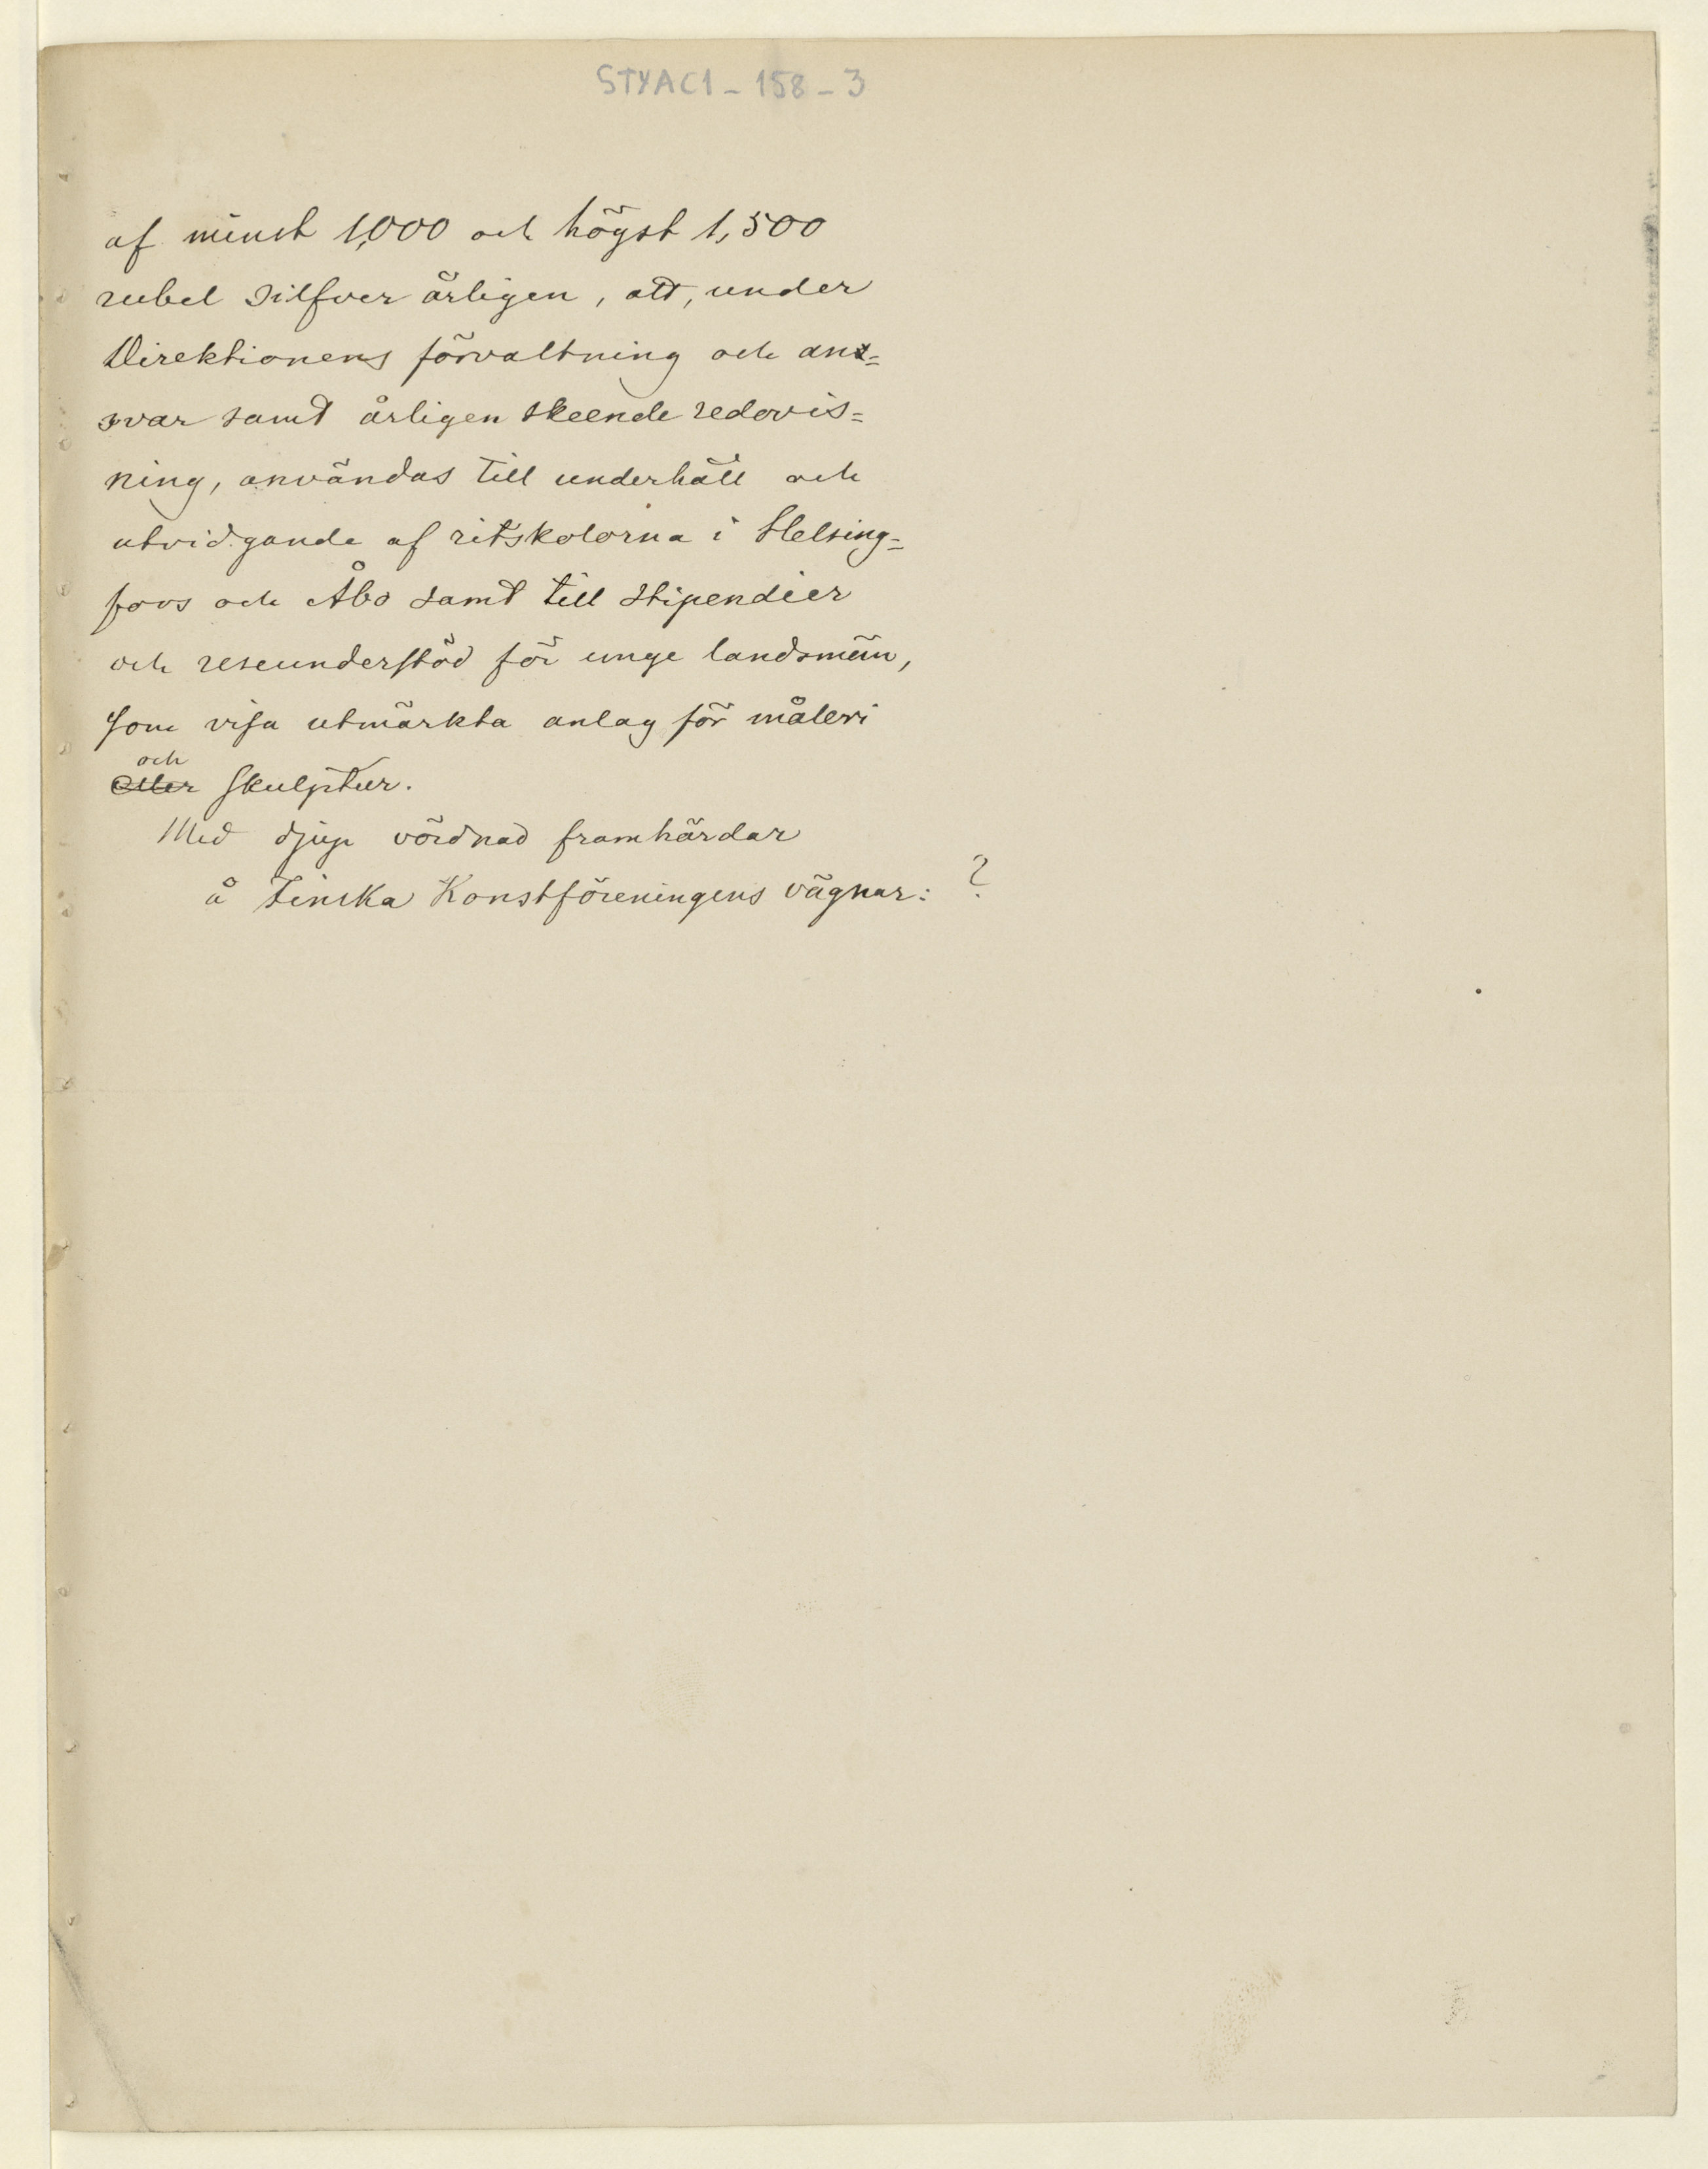 STYAC1-158-3
af minst 1,000 och högst 1,500
rubel silfver årligen, att, under
Direktionens förvaltning och an=
svar samt årligen skeende redovis=
ning, användas till underhåll och
utvidgande af ritskolorna i Helsing=
fors och Åbo samt till stipendier
och reseunderstöd för unge landsmän,
som visa utmärkta anlag för måleri
och
eller skulptur.
Med djup vördnad framhärdar
å Finska Konstföreningens vägnar: ?